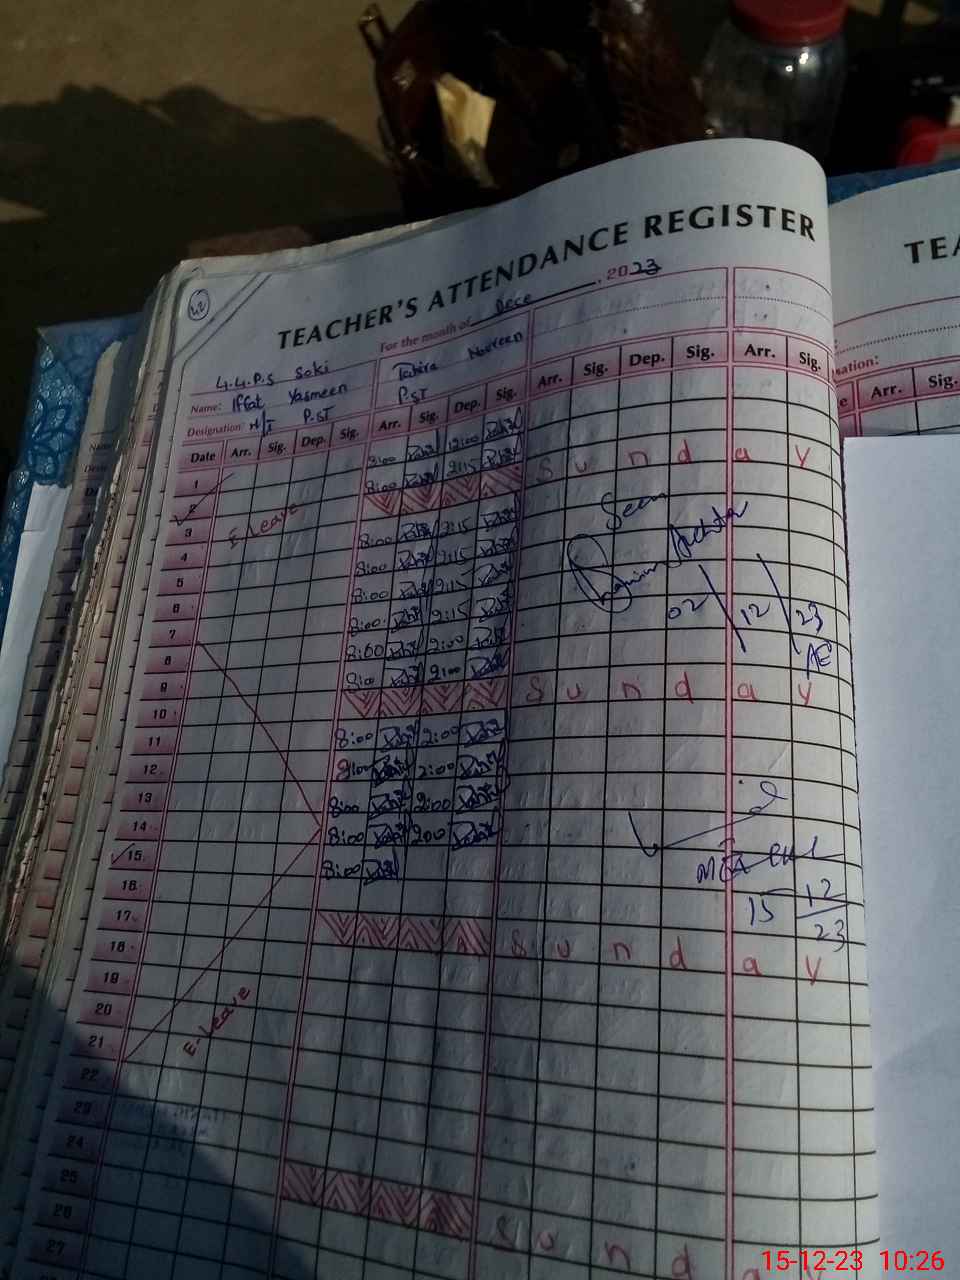 TEACHER'S ATTENDANCE REGISTER
TEA
42
For the month of Dece, 2023
G.G.P.S Soki
Name: Iffat Yasmeen Tahira Noreen
Designation: H/T P.ST P.ST
Date Arr. Sig. Dep. Sig. Arr. Sig. Dep. Sig. Arr. Sig. Dep. Sig. Arr. Sig.
sation:
e Arr. Sig.
1 8:00 12:00
2 8:00 2:15
3 Sunday
E-Leave
4 8:00 2:15
Seen
5 8:00 2:15
6 8:00 2:15
7 8:00 2:15
02 12 23
8 8:00 2:00
AE
9 8:00 2:00
10 Sunday
11 8:00 2:00
12 8:00 2:00
13 8:00 2:00
14 8:00 2:00
15 8:00
16
15 12
23
17 Sunday
18
19
20
E-Leave
21
22
23
24
25
26 Sund
27
15-12-23 10:26